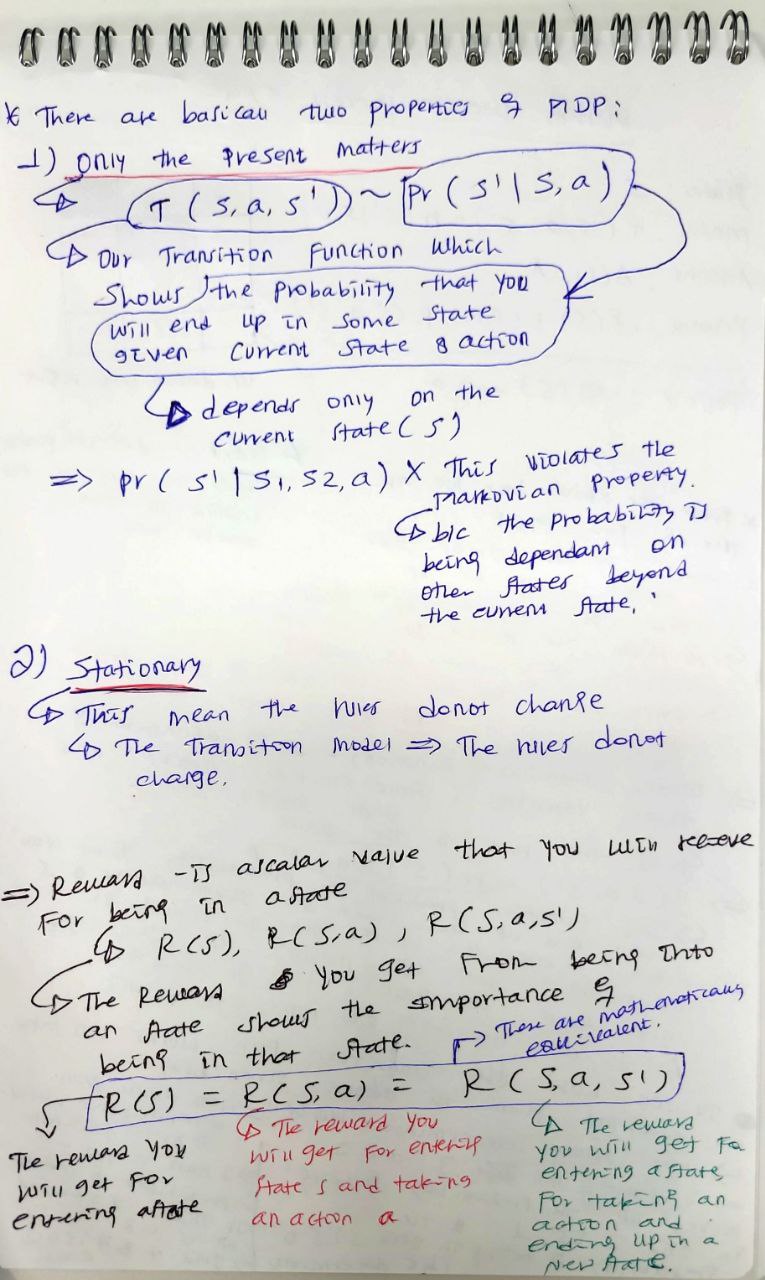 * There are basicall two properties of MDP:
1) Only the Present matters
T ( S, a, s' ) ~ Pr ( s' | S, a )
Our Transition Function which
Shows the Probability that you
will end up in some state
given current state & action
depends only on the
current state ( S )
=> pr ( s' | S1, S2, a ) X This violates the
Markovian property.
b/c the probability is
being dependant on
other states beyond
the current state.
2) Stationary
This mean the rules donot change
The Transition model => The rules donot
change.
=> Reward - is ascalar value that you will receve
For being in a state
R(S), R(S,a), R(S,a,s')
The Reward you get From being into
an state shows the importance of
being in that state.
These are mathematically
equivalent.
R(S) = R(S,a) = R(S,a,s')
The reward you
will get for
entering astate
The reward you
will get for entering
state s and taking
an action a
The reward
you will get Fo
entering a state,
For taking an
action and
ending up in a
new state.